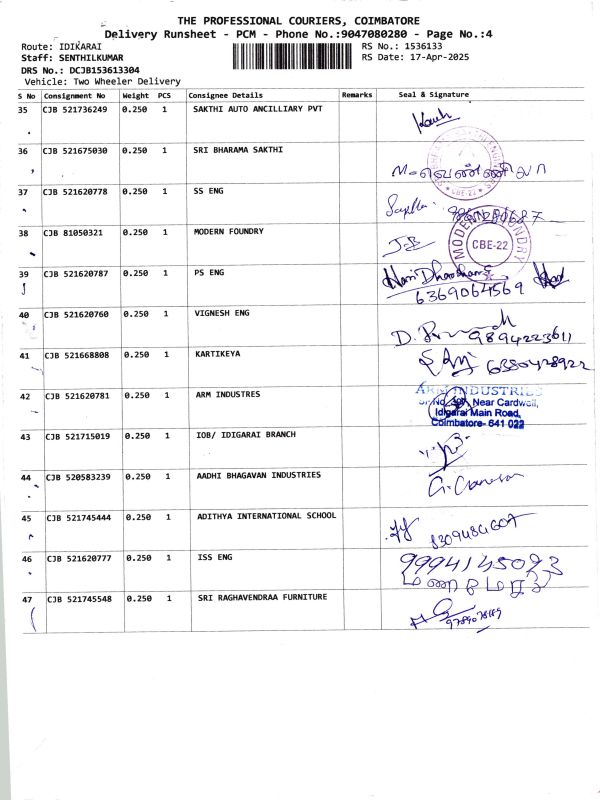 THE PROFESSIONAL COURIERS, COIMBATORE
Delivery Runsheet - PCM - Phone No.:9047080280 - Page No.:4
Route: IDIKARAI RS No.: 1536133
Staff: SENTHILKUMAR RS Date: 17-Apr-2025
DRS No.: DCJB153613304
Vehicle: Two Wheeler Delivery
S No Consignment No Weight PCS Consignee Details Remarks Seal & Signature
35 CJB 521736249 0.250 1 SAKTHI AUTO ANCILLIARY PVT
36 CJB 521675030 0.250 1 SRI BHARAMA SAKTHI
CBE-22
37 CJB 521620778 0.250 1 SS ENG
38 CJB 81050321 0.250 1 MODERN FOUNDRY
MODERN FOUNDRY
CBE-22
39 CJB 521620787 0.250 1 PS ENG
6369064569
40 CJB 521620760 0.250 1 VIGNESH ENG
9894223611
41 CJB 521668808 0.250 1 KARTIKEYA
6380428922
42 CJB 521620781 0.250 1 ARM INDUSTRIES
ARM INDUSTRIES
Near Cardwell,
Idigarai Main Road,
Coimbatore- 641 022
43 CJB 521715019 0.250 1 IOB/ IDIGARAI BRANCH
44 CJB 520583239 0.250 1 AADHI BHAGAVAN INDUSTRIES
45 CJB 521745444 0.250 1 ADITHYA INTERNATIONAL SCHOOL
46 CJB 521620777 0.250 1 ISS ENG
47 CJB 521745548 0.250 1 SRI RAGHAVENDRAA FURNITURE